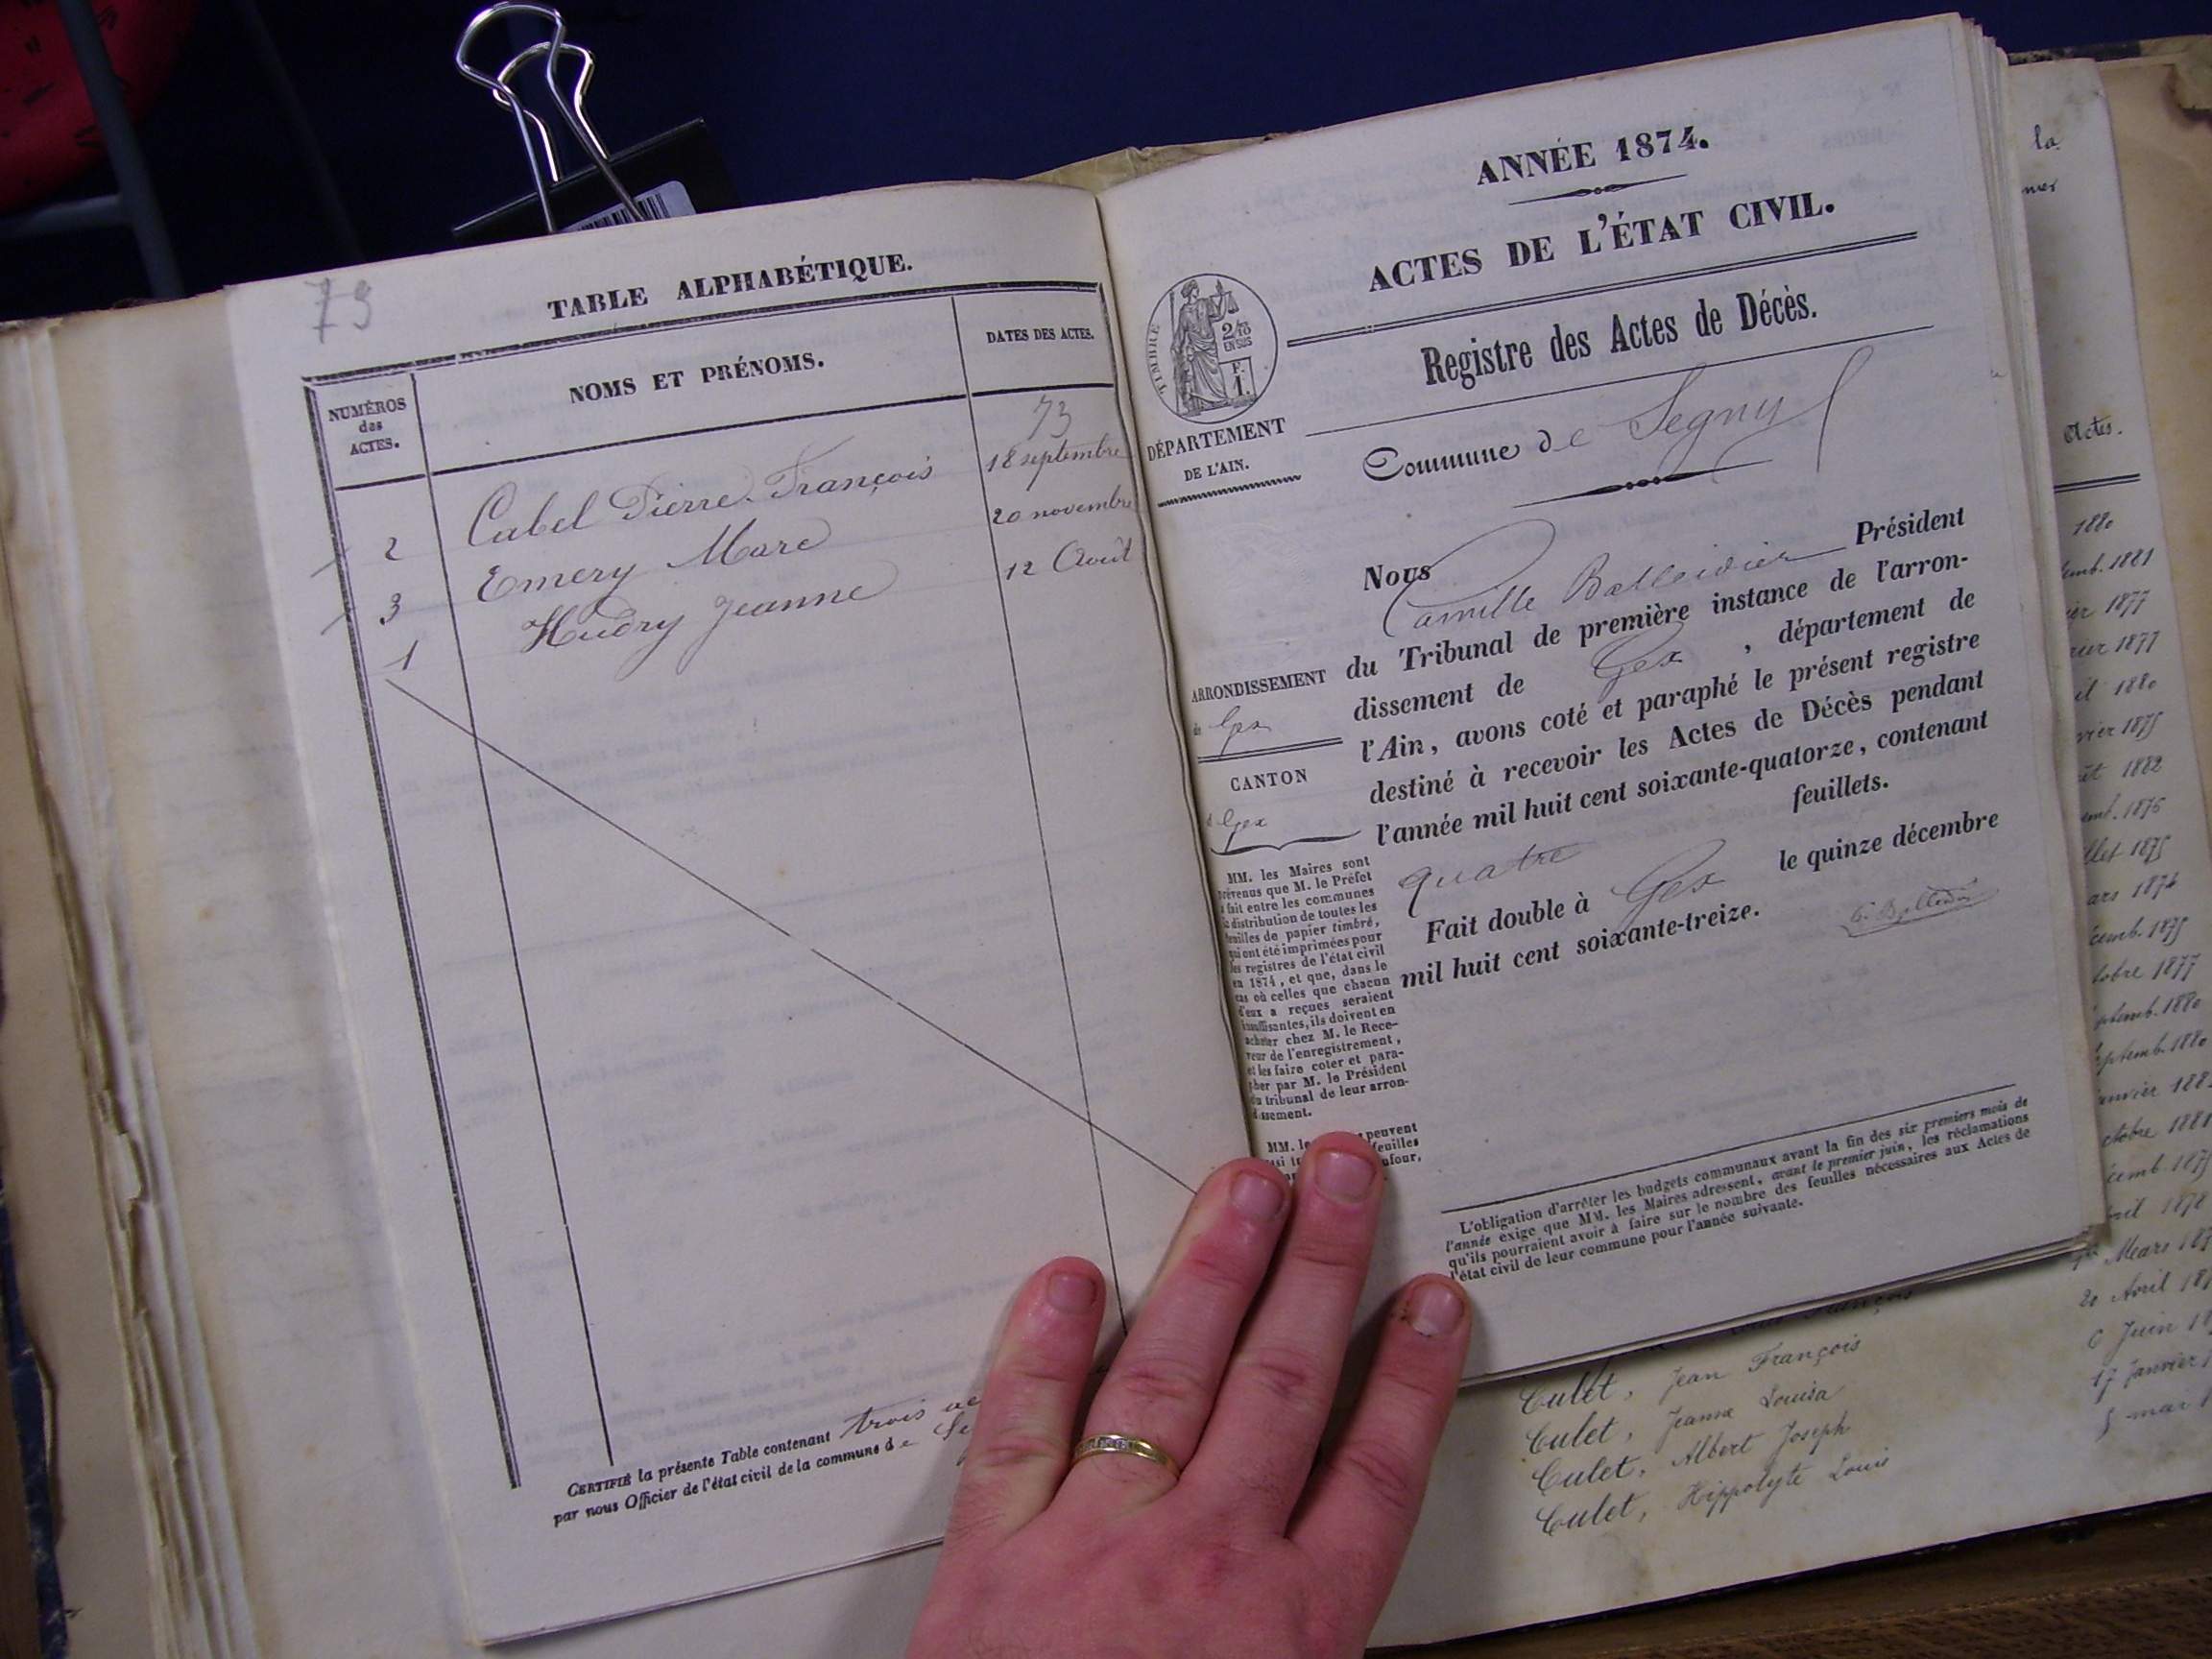 79
TABLE ALPHABÉTIQUE.
NUMÉROS
des
ACTES.
NOMS ET PRÉNOMS.
DATES DES ACTES.
73
2 Cabel Pierre François 18 septembre
3 Emery Marc 20 novembre
1 Hudry Jeanne 12 Août
CERTIFIÉ la présente Table contenant trois
par nous Officier de l'état civil de la commune de
ANNÉE 1874.
ACTES DE L'ÉTAT CIVIL.
TIMBRE
2/10
EN SUS
F.
1.
Registre des Actes de Décès.
DÉPARTEMENT
DE L'AIN.
Commune de Segny
Nous Camille Balleidier Président
du Tribunal de première instance de l'arron-
dissement de Gex, département de
l'Ain, avons coté et paraphé le présent registre
destiné à recevoir les Actes de Décès pendant
l'année mil huit cent soixante-quatorze, contenant
quatre feuillets.
Fait double à Gex le quinze décembre
mil huit cent soixante-treize.
ARRONDISSEMENT
de Gex
CANTON
d Gex
MM. les Maires sont
prévenus que M. le Préfet
a fait entre les communes
la distribution de toutes les
feuilles de papier timbré,
qui ont été imprimées pour
les registres de l'état civil
en 1874, et que, dans le
cas où celles que chacun
d'eux a reçues seraient
insuffisantes, ils doivent en
acheter chez M. le Rece-
veur de l'enregistrement,
et les faire coter et para-
pher par M. le Président
du tribunal de leur arron-
dissement.
MM. le peuvent
feuilles
L'obligation d'arrêter les budgets communaux avant la fin des six premiers mois de
l'année exige que MM. les Maires adressent, avant le premier juin, les réclamations
qu'ils pourraient avoir à faire sur le nombre des feuilles nécessaires aux Actes de
l'état civil de leur commune pour l'année suivante.
la
Actes.
1880
1881
1877
1877
1880
1875
1882
1876
1875
1874
1875
1877
1880
1880
1881
Mars
20 Avril
6 Juin
17 Janvier
5 mai
Culet, Jean François
Culet, Jeanne Louisa
Culet, Albert Joseph
Culet, Hippolyte Louis